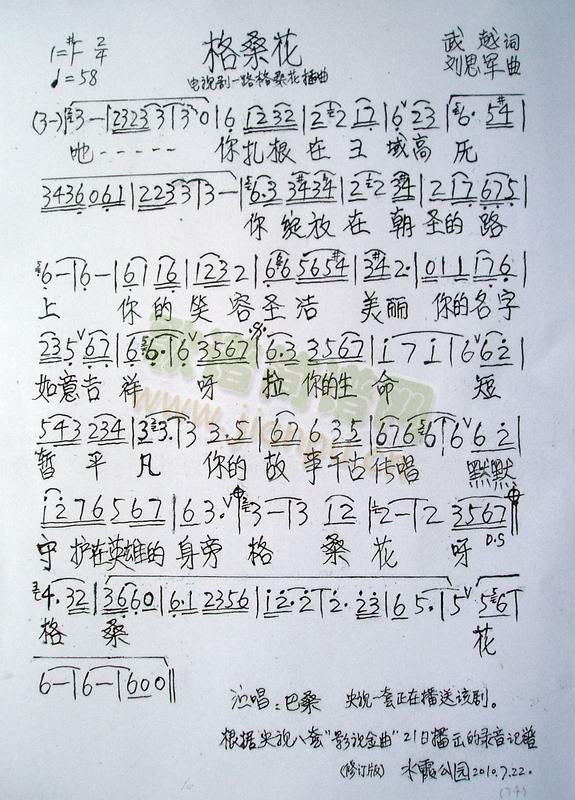 格桑花
1=#F 2/4
♩=58
武越词
刘思军曲
电视剧一路格桑花插曲
(3-)|3-|2323 3|3 0|6 12 32|2 2 17|6 23|6· 5#4|
吔 - - - - - 你扎根在 王 域高 厄
3436 061|2233|3-|6·3 #4 34|2 2 #34|2 17 675|
你 绽放 在 朝 圣的 路
6-|6-|61 16|123 2|66 565#4|3#4 2·|011 176|
上 你的 笑容圣洁 美丽 你的名字
235 67|6 6·|6 3567|6·3 3567|i 7 i|6 6 2|
如意吉 祥 呀 拉你的生 命 短
543 234|3 3·|3 3·2|6 6 35|676 6|6 6 2|
暂 平 凡 你的 故 事千古传唱 默默
i276567|6 3·|3-|3 12|2-|2 3567|
守护在英雄的身旁 格 桑 花 呀 D.S
4·32|3660|6·1 2356|i2·2|2·23|6 5·|5 56|
格 桑 花
6-|6-|600‖
演唱：巴桑 央视一套正在播送该剧。
根据央视八套"影视金曲"21日播出的录音记谱
(修订版) 水霞公园2010.7.22.